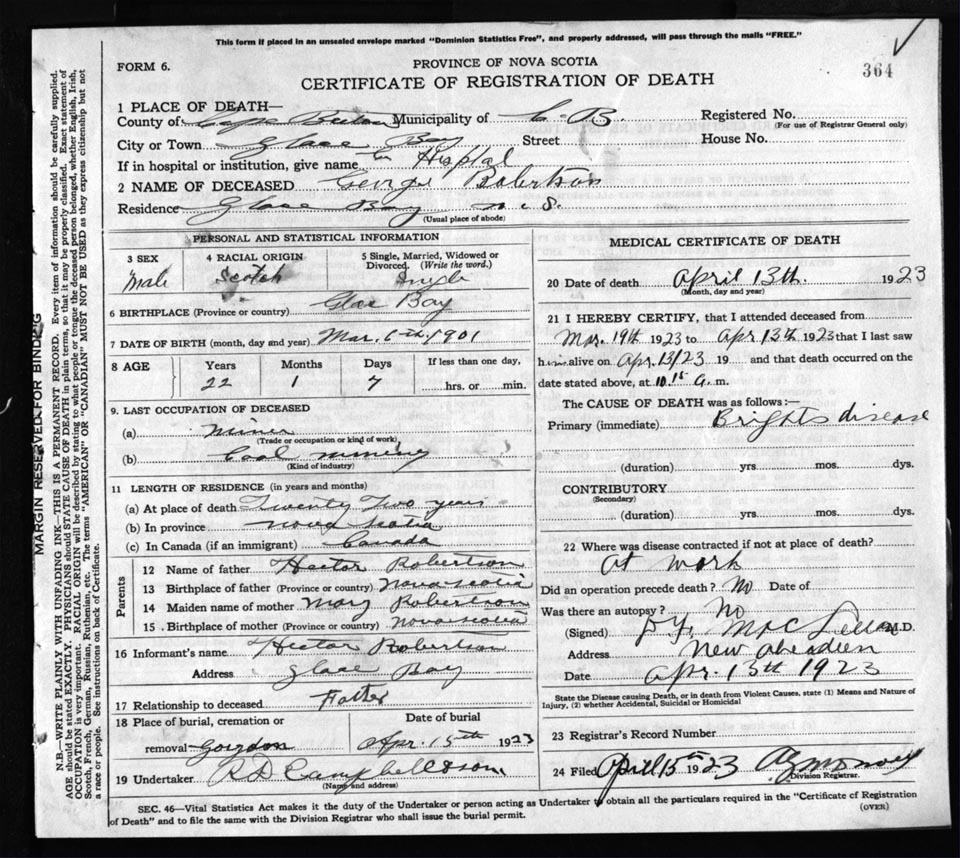 This form if placed in an unsealed envelope marked "Dominion Statistics Free", and properly addressed, will pass through the mails "FREE."
FORM 6.
PROVINCE OF NOVA SCOTIA
364
CERTIFICATE OF REGISTRATION OF DEATH
1 PLACE OF DEATH—
County of Cape Breton Municipality of C. B. Registered No.
(For use of Registrar General only)
City or Town Glace Bay Street House No.
If in hospital or institution, give name Hospital
2 NAME OF DECEASED George Robertson
Residence Glace Bay N. S.
(Usual place of abode)
PERSONAL AND STATISTICAL INFORMATION
3 SEX 4 RACIAL ORIGIN 5 Single, Married, Widowed or
Divorced. (Write the word.)
Male Scotch Single
6 BIRTHPLACE (Province or country) Glace Bay
7 DATE OF BIRTH (month, day and year) Mar. 6th, 1901
8 AGE Years Months Days If less than one day,
22 1 7 hrs. or min.
9. LAST OCCUPATION OF DECEASED
(a) Miner
(Trade or occupation or kind of work)
(b) Coal mining
(Kind of industry)
11 LENGTH OF RESIDENCE (in years and months)
(a) At place of death Twenty Two years
(b) In province Nova Scotia
(c) In Canada (if an immigrant) Canada
Parents
12 Name of father Hector Robertson
13 Birthplace of father (Province or country) Nova Scotia
14 Maiden name of mother Mary Robertson
15 Birthplace of mother (Province or country) Nova Scotia
16 Informant's name Hector Robertson
Address Glace Bay
17 Relationship to deceased Father
18 Place of burial, cremation or Date of burial
removal Gordon Apr. 15th 1923
19 Undertaker R D Campbell & Son
(Name and address)
MEDICAL CERTIFICATE OF DEATH
20 Date of death April 13th. 1923
(Month, day and year)
21 I HEREBY CERTIFY, that I attended deceased from
Mar. 19th 1923 to Apr 13th 1923 that I last saw
him alive on Apr. 13/23 19 and that death occurred on the
date stated above, at 10.15 a. m.
The CAUSE OF DEATH was as follows:—
Primary (immediate) Brights disease
(duration) yrs mos. dys.
CONTRIBUTORY
(Secondary)
(duration) yrs. mos. dys.
22 Where was disease contracted if not at place of death?
At work
Did an operation precede death? No Date of
Was there an autopsy? No
(Signed) MacLellan M.D.
Address New Aberdeen
Date Apr. 13th 1923
State the Disease causing Death, or in death from Violent Causes, state (1) Means and Nature of
Injury, (2) whether Accidental, Suicidal or Homicidal
23 Registrar's Record Number
24 Filed April 15th 1923
Division Registrar.
SEC. 46—Vital Statistics Act makes it the duty of the Undertaker or person acting as Undertaker to obtain all the particulars required in the "Certificate of Registration
(OVER)
of Death" and to file the same with the Division Registrar who shall issue the burial permit.
MARGIN RESERVED FOR BINDING
N.B.—WRITE PLAINLY WITH UNFADING INK—THIS IS A PERMANENT RECORD. Every item of information should be carefully supplied.
AGE should be stated EXACTLY. PHYSICIANS should STATE CAUSE OF DEATH in plain terms, so that it may be properly classified. Exact statement of
OCCUPATION is very important. RACIAL ORIGIN will be described by stating to what people or tongue the deceased person belonged, whether English, Irish,
Scotch, French, German, Russian, Ruthenian, etc. The terms "AMERICAN" or "CANADIAN" MUST NOT BE USED as they express citizenship but not
a race or people. See instructions on back of Certificate.